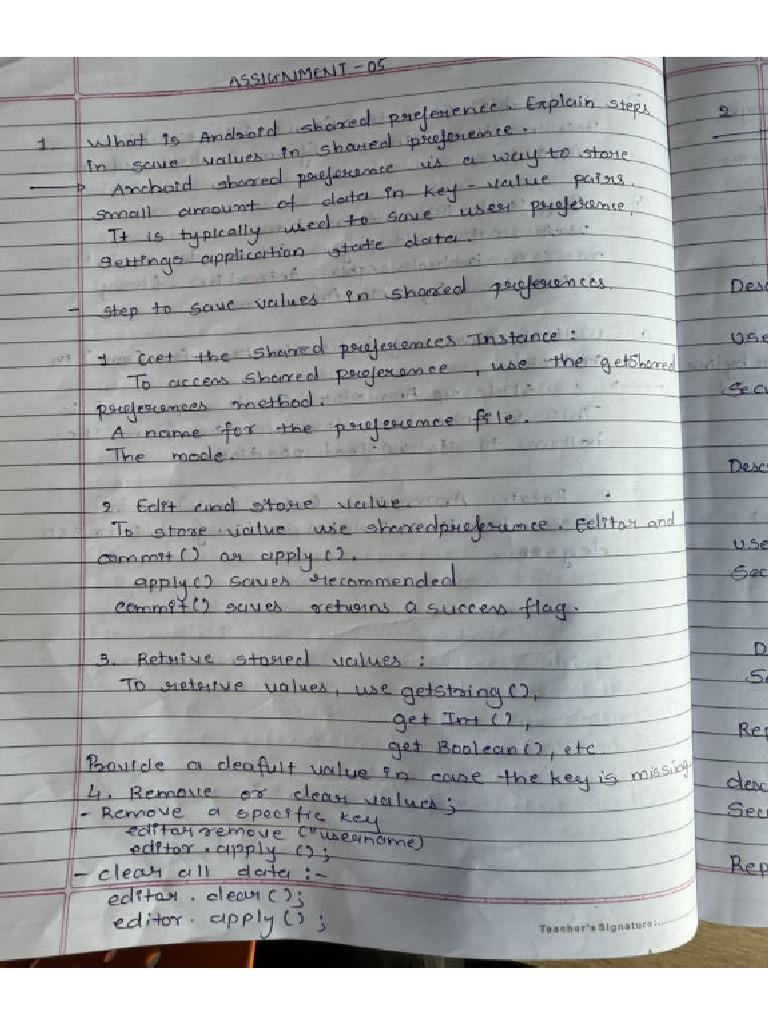 ASSIGNMENT - 05
1 What is Android shared preference. Explain steps
2
in save values in shared preference.
→ Android shared preference is a way to store
small amount of data in key - value pairs.
It is typically used to save user preference,
settings application state data.
- step to save values in shared preferences.
Desc
1. Get the shared preferences Instance :
Use
To access shared preference, use the getShared
Secu
preferences method.
A name for the preference file.
The mode.
Desc
2. Edit and store value.
To store value use sharedpreference. Editor and
Use
commit() or apply ().
Sec
apply() saves recommended
commit() saves returns a success flag.
3. Retrive stored values :
D
To retrive values, use getstring(),
S
get Int (),
Rep
get Boolean(), etc.
Provide a deafult value in case the key is missing.
desc
4. Remove or clear values ;
Secu
- Remove a specific key
editor remove ("username)
editor. apply ();
Rep
- clear all data :-
editor. clear();
editor. apply() ;
Teacher's Signature:......